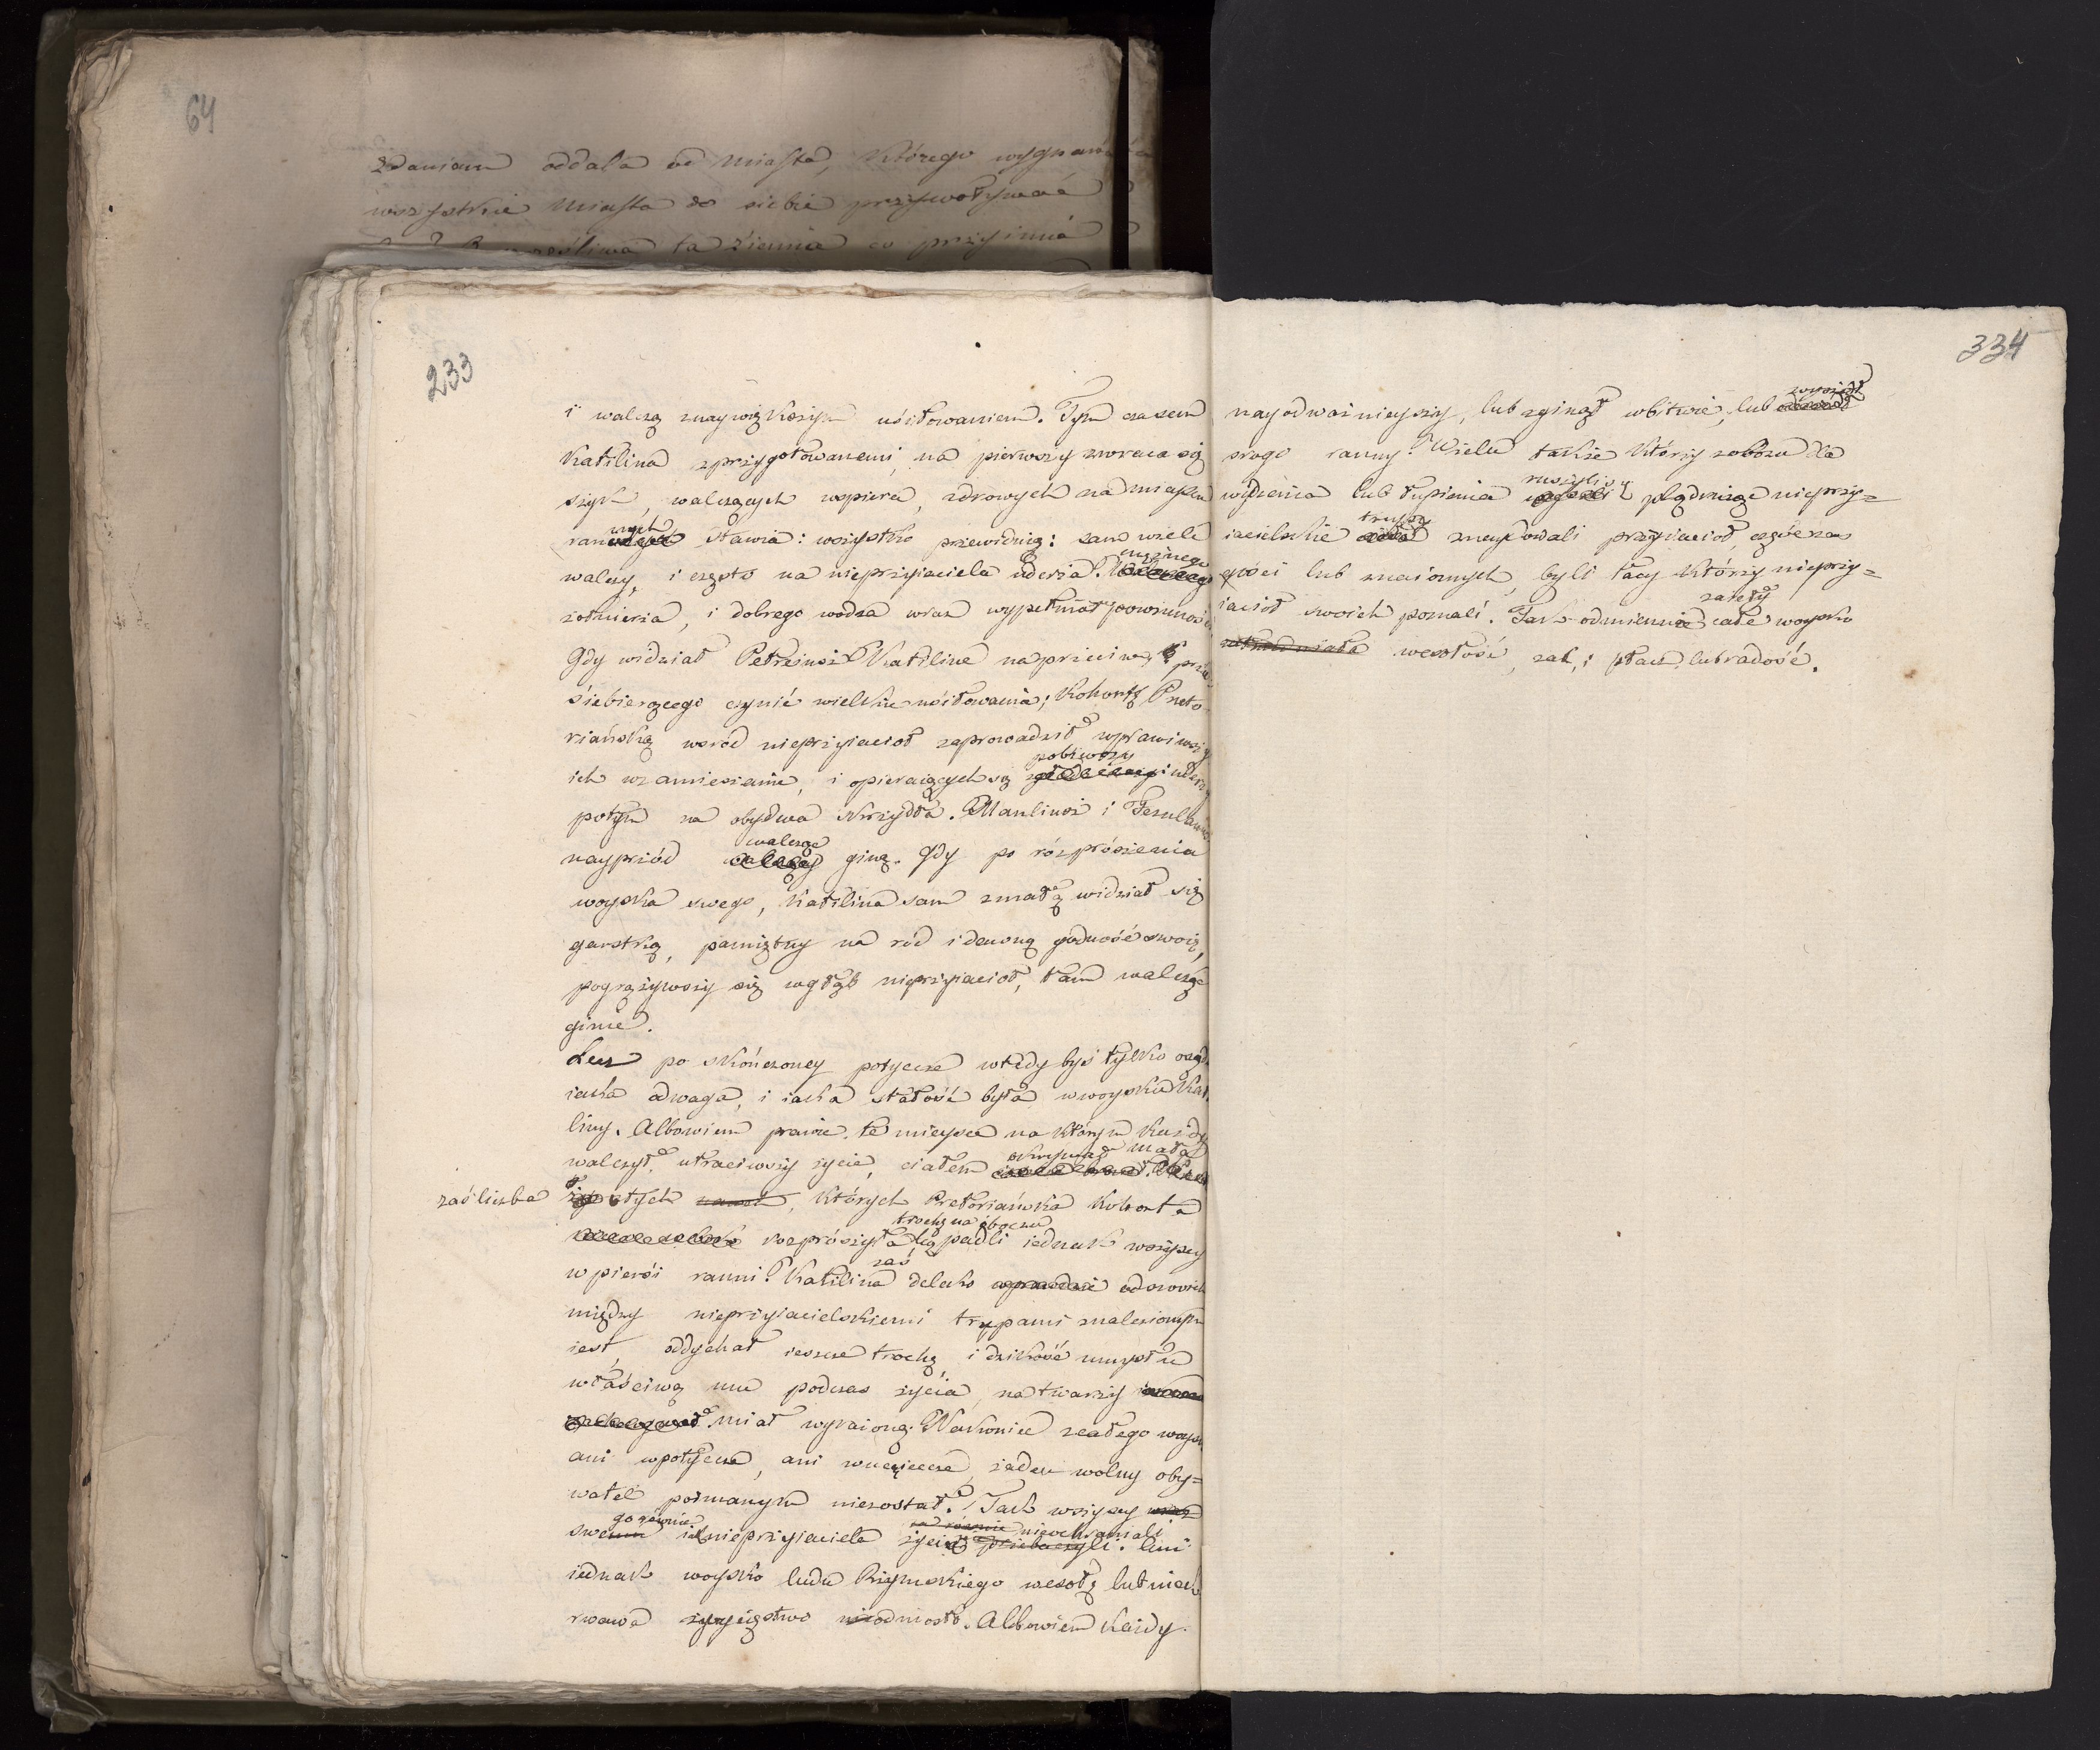 64
zdaniem oddala od Miasta, którego wygnania
wszystkie Miasta do siebie przywoływać
ta ziemia co przyimie
233
i walczą znaywiększym usiłowaniem. Tym czasem
Katilina zprzygotowanemi na pierwszy zwraca się
szyk, walczących wspiera, zdrowych na mieysca
rannych stawia: wszystko przewiduię: sam wiele
walczy, i często na nieprzyiaciela uderza. mężnego
żołnierza, i dobrego wodza wraz wypełniał powinności
Gdy widział Petreiusz Katilinę naprzeciw
siebierzącego czynić wielkie usiłowania; Kohortę Preto-
riańską wśród nieprzyiacioł zaprowadził wprawiwszy
ich wzamieszanie, i opieraiących się pobiwszy uderza
potym na obydwa skrzydła. Manliusz i Fesulanus
nayprzód walcząc giną. Gdy po rozprószenia
woyska swego, Katilina sam zmałą widział się
garstką, pamiętny na ród i dawną godność swoią,
pogrążywszy się wgłąb nieprzyiacioł, tam walcząc
ginie.
Lecz po skończoney potyczce wtedy byś tylko osądził
iaka odwaga, i iaka stałość była wwoysku Kati
liny. Albowiem prawie te mieysce na którym każdy
walczył, utraciwszy życie, ciałem okrywał Mała
zaś liczba z tych, których Pretoriańska kohorta
rozprószyła, trochę na boczu padli iednak wszyscy
wpiersi ranni. Katilina zaś daleko odswoich
między nieprzyiacielskiemi trupami znalezionym
iest, oddychał ieszcze trochę, i dzikość umysłu
właściwą mu podczas życia, na twarzy
miał wyrażoną. Nakoniec zcałego woyska
ani wpotyczce, ani wucieczce, żaden wolny oby=
watel poimanym niezostał. Tak wszyscy
swego równie iak nieprzyiaciela życia nieochraniali. Ani
iednak woysko ludu Rzymskiego wesołę lub niek
rwawe zwycięstwo odniosło. Albowiem każdy
334
nayodważnieyszy, lub zginął wbitwie, lub
srogo ranny. Wielu także którzy zobozu dla
widzenia lub łupienia ruszyli plądruiąc nieprzy=
iacielskie trupy znaydowali przyiaciół, część zaś
gości lub znaiomych, byli tacy którzy nieprzy=
iacioł swoich poznali. Tak odmiennie całe woysko zaięły
wesołość, żal, i płacz, lub radość.